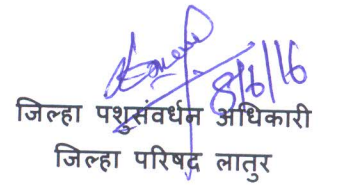 8/6/16
जिल्हा पशुसंवर्धन अधिकारी
जिल्हा परिषद लातुर